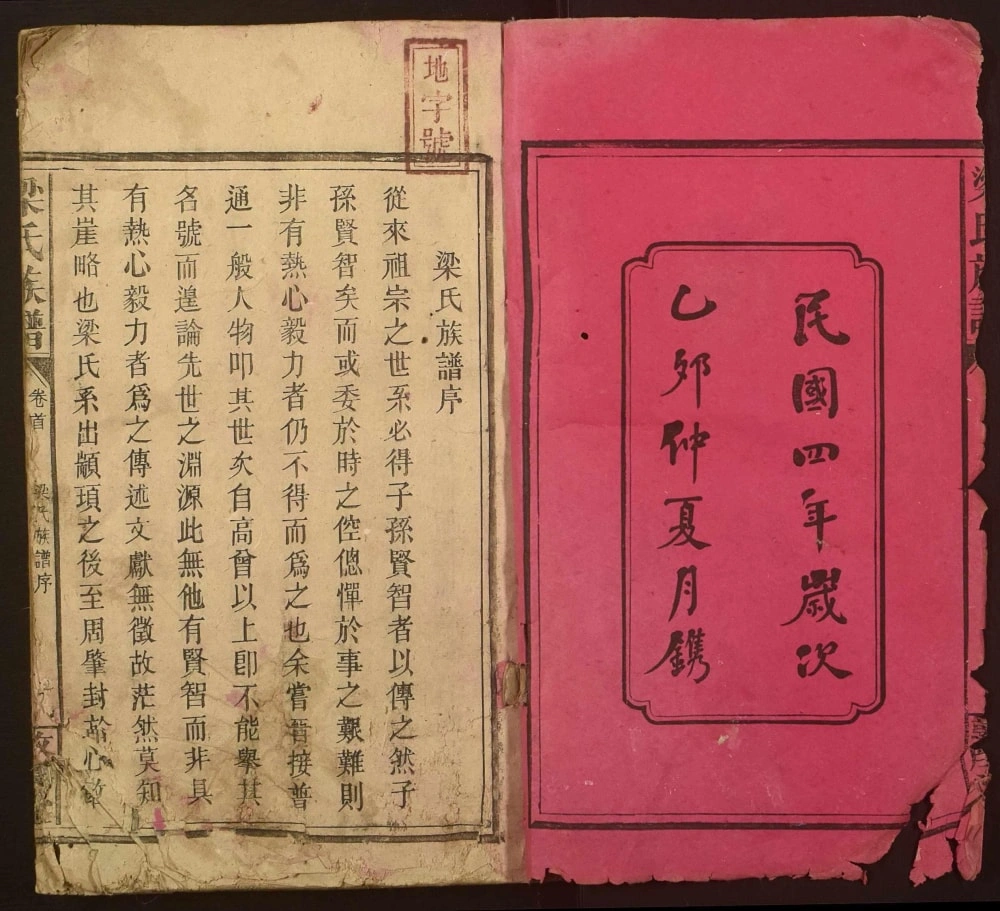 民國四年歲次
乙卯仲夏月鐫
地字號
梁氏族譜序
從來祖宗之世系必得子孫賢智者以傳之然子
孫賢智矣而或委於時之倥傯憚於事之艱難則
非有熱心毅力者仍不得而爲之也余嘗晉接普
通一般人物叩其世次自高曾以上卽不能舉其
名號而遑論先世之淵源此無他有賢智而非具
有熱心毅力者爲之傳述文獻無徵故茫然莫知
其崖略也梁氏系出顓頊之後至周肇封於心
梁氏族譜
卷首
梁氏族譜序
梁氏族譜